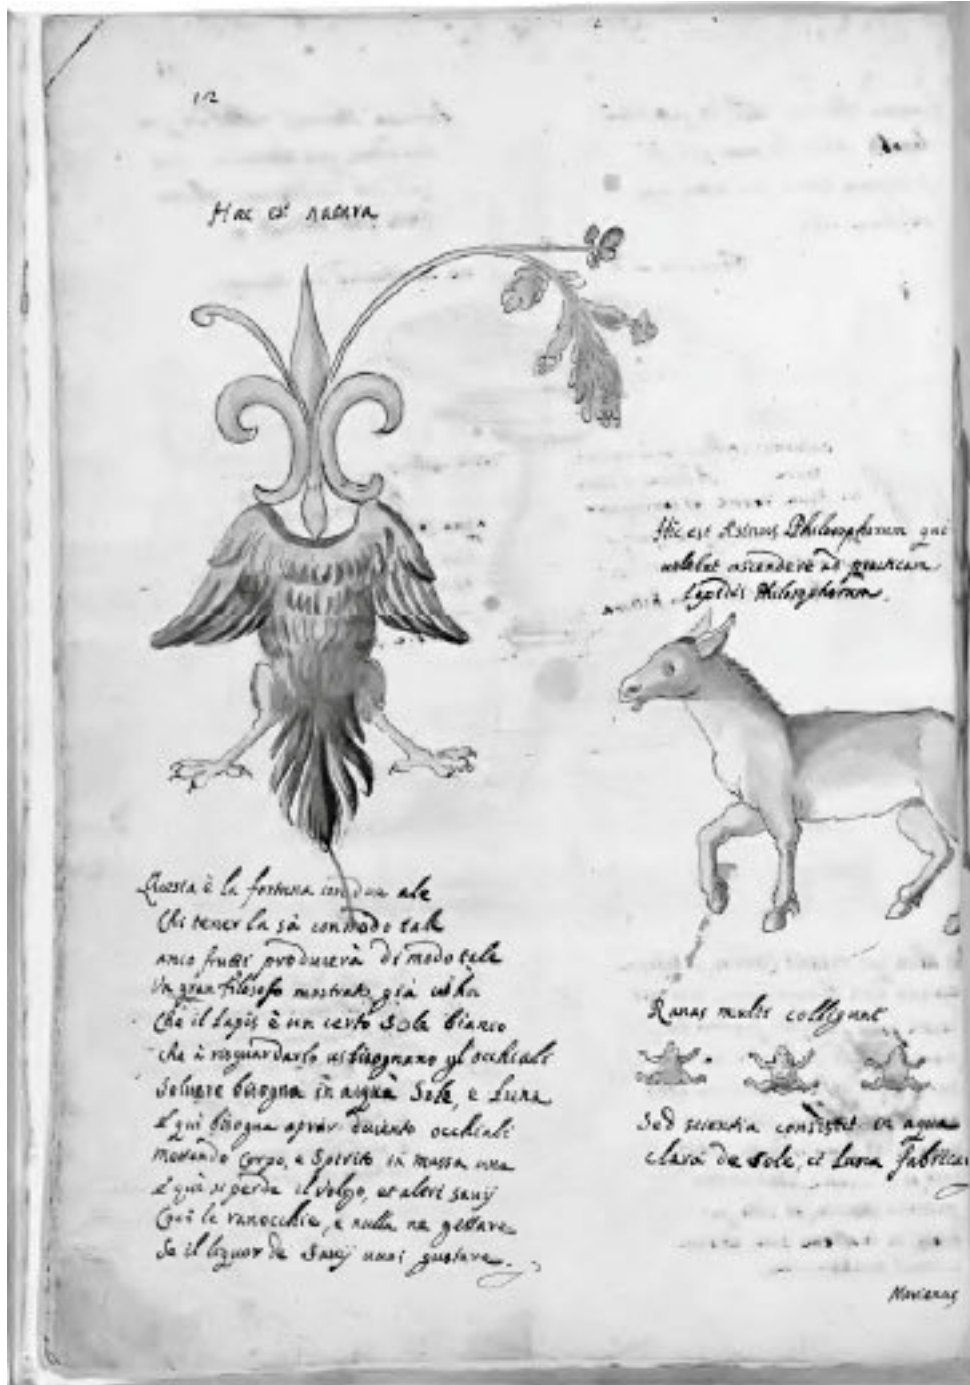 12
Hac est natura
Hic est Asinus Philosophorum qui
volebat ascendere ad practicam
lapidis Philosophorum
Questa è la fortuna con due ale
Chi tener la sà con modo tale
frutti produrrà di modo tale
Un gran filosofo mostrato già
Che il Lapis è un certo Sole bianco
che à risguardarlo vi bisognano gl'occhiali
Solvere bisogna in acqua Sole, e Luna
E qui bisogna aprir ducento occhiali
Mettendo Corpo, e Spirito in massa una
E quì si perde il volgo, et altri savij
le ranocchie, e nulla ne
Se il liquor de Savij vuoi gustare.
Ranas multi colligunt
Sed scientia consistit in aqua
clara de Sole, et Luna
Morienus